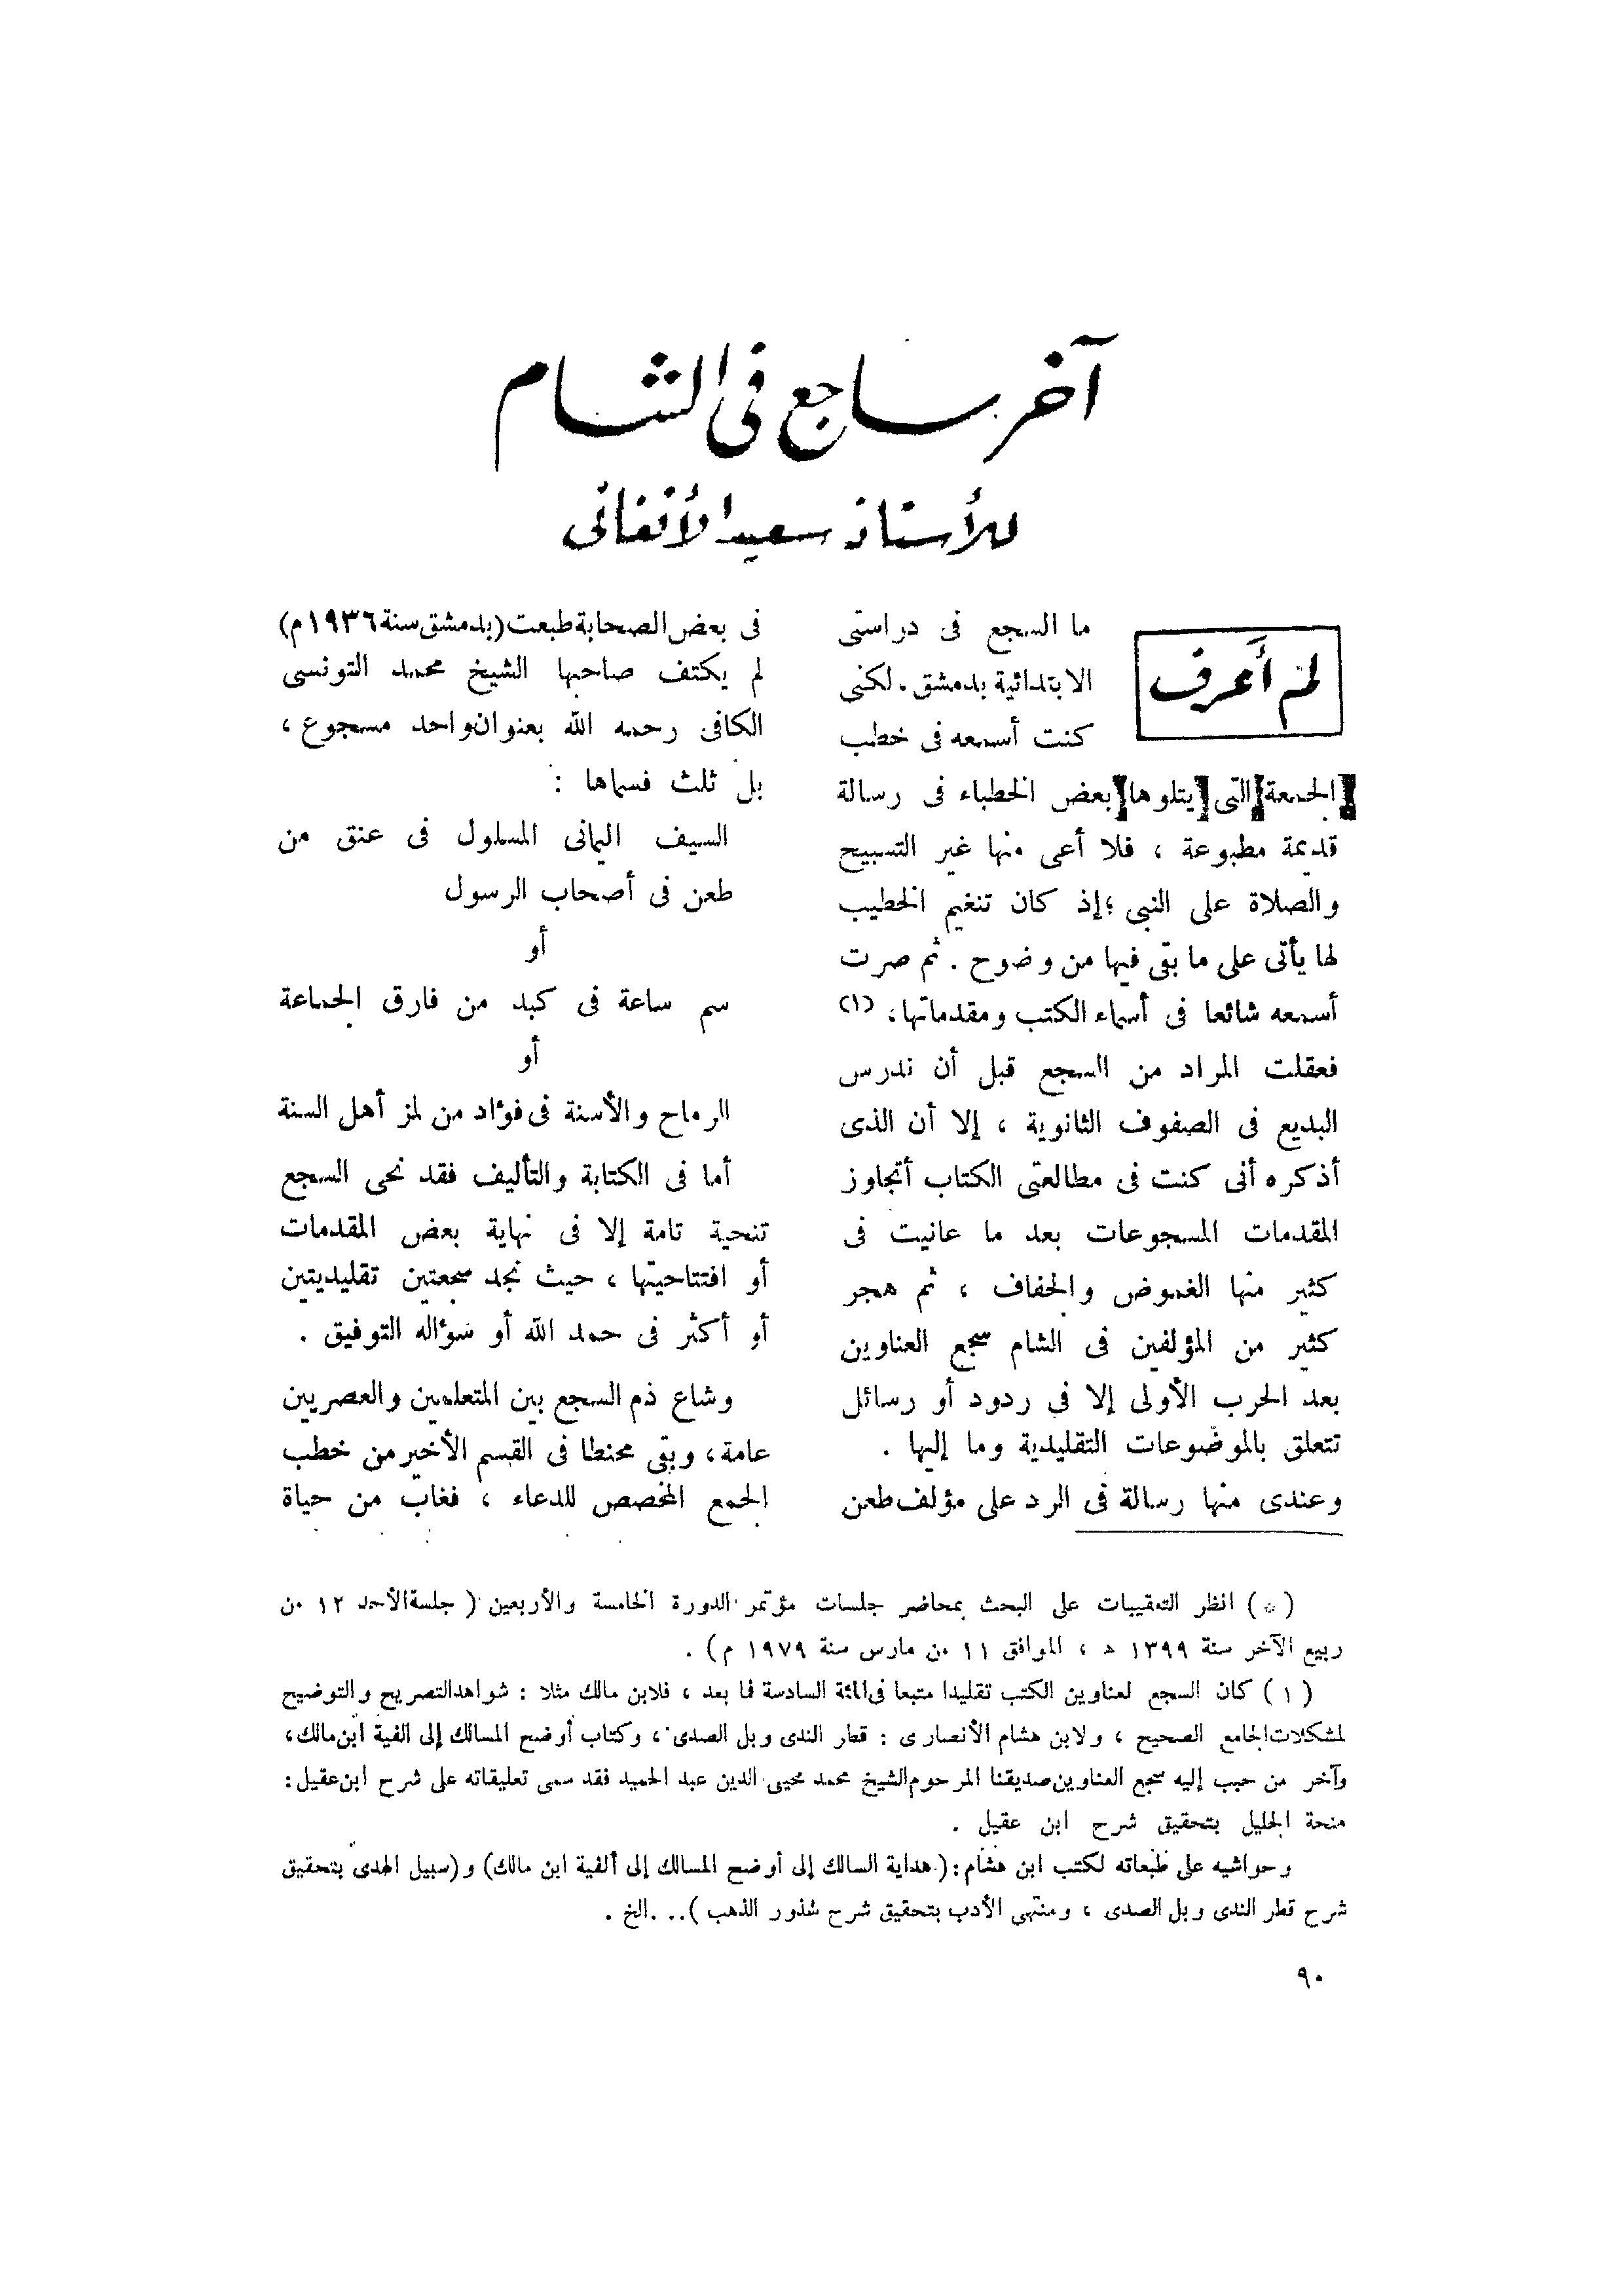 آخر ساجع فى الشام
للأستاذ سعيد الأفغانى
لم أعرف
ما السجع فى دراستى
الابتدائية بدمشق . لكنى
كنت أسمعه فى خطب
الجمعة التى يتلوها بعض الخطباء فى رسالة
قديمة مطبوعة ، فلا أعى منها غير التسبيح
والصلاة على النبى ؛ إذ كان تنغيم الخطيب
لها يأتى على ما بقى فيها من وضوح . ثم صرت
أسمعه شائعا فى أسماء الكتب ومقدماتها، (١)
فعقلت المراد من السجع قبل أن ندرس
البديع فى الصفوف الثانوية ، إلا أن الذى
أذكره أنى كنت فى مطالعتى الكتاب أتجاوز
المقدمات المسجوعات بعد ما عانيت فى
كثير منها الغموض والجفاف ، ثم هجر
كثير من المؤلفين فى الشام سجع العناوين
بعد الحرب الأولى إلا فى ردود أو رسائل
تتعلق بالموضوعات التقليدية وما إليها .
وعندى منها رسالة فى الرد على مؤلف طعن
فى بعض الصحابة طبعت (بدمشق سنة ١٩٣٦م)
لم يكتف صاحبها الشيخ محمد التونسى
الكافى رحمه الله بعنوان واحد مسجوع ،
بل ثلث فسماها :
السيف اليمانى المسلول فى عنق من
طعن فى أصحاب الرسول
أو
سم ساعة فى كبد من فارق الجماعة
أو
الرماح والأسنة فى فؤاد من لمز أهل السنة
أما فى الكتابة والتأليف فقد نحى السجع
تنحية تامة إلا فى نهاية بعض المقدمات
أو افتتاحيتها ، حيث نجد سجعتين تقليديتين
أو أكثر فى حمد الله أو سؤاله التوفيق .
وشاع ذم السجع بين المتعلمين والعصريين
عامة، وبقى محنطا فى القسم الأخير من خطب
الجمع المخصص للدعاء ، فغاب من حياة
(*) انظر التعقيبات على البحث بمحاضر جلسات مؤتمر الدورة الخامسة والأربعين ( جلسة الأحد ١٢ من
ربيع الآخر سنة ١٣٩٩ هـ ، الموافق ١١ من مارس سنة ١٩٧٩ م) .
(١) كان السجع لعناوين الكتب تقليدا متبعا فى المئة السادسة فما بعد ، فلابن مالك مثلا : شواهد التصريح والتوضيح
لمشكلات الجامع الصحيح ، ولابن هشام الأنصارى : قطر الندى وبل الصدى ، وكتاب أوضح المسالك إلى الفية ابن مالك،
وآخر من حبب إليه سجع العناوين صديقنا المرحوم الشيخ محمد محيى الدين عبد الحميد فقد سمى تعليقاته على شرح ابن عقيل :
منحة الجليل بتحقيق شرح ابن عقيل .
وحواشيه على طبعاته لكتب ابن هشام : (هداية السالك إلى أوضح المسالك إلى ألفية ابن مالك) و (سبيل الهدى بتحقيق
شرح قطر الندى وبل الصدى ، ومنتهى الأدب بتحقيق شرح شذور الذهب ).. .الخ .
٩٠